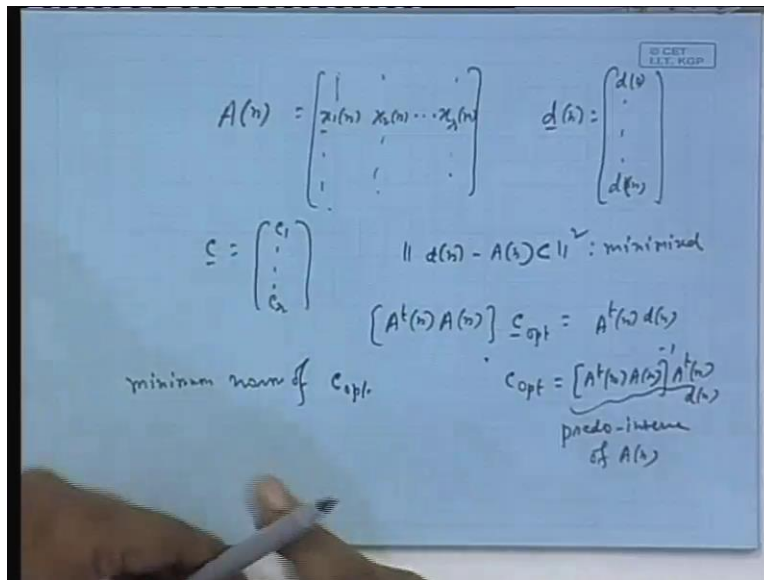 © CET
I.I.T. KGP
A(n) = [x₁(n) x₂(n) ⋯ x_r(n)] d(n) = [d(1) ⋮ d(n)]
c = [c₁ ⋮ c_r] || d(n) - A(n) c ||² : minimized
[Aᵗ(n) A(n)] c_opt = Aᵗ(n) d(n)
minimum norm of c_opt. c_opt = [Aᵗ(n) A(n)]⁻¹ Aᵗ(n) d(n)
psedo-inverse
of A(n)